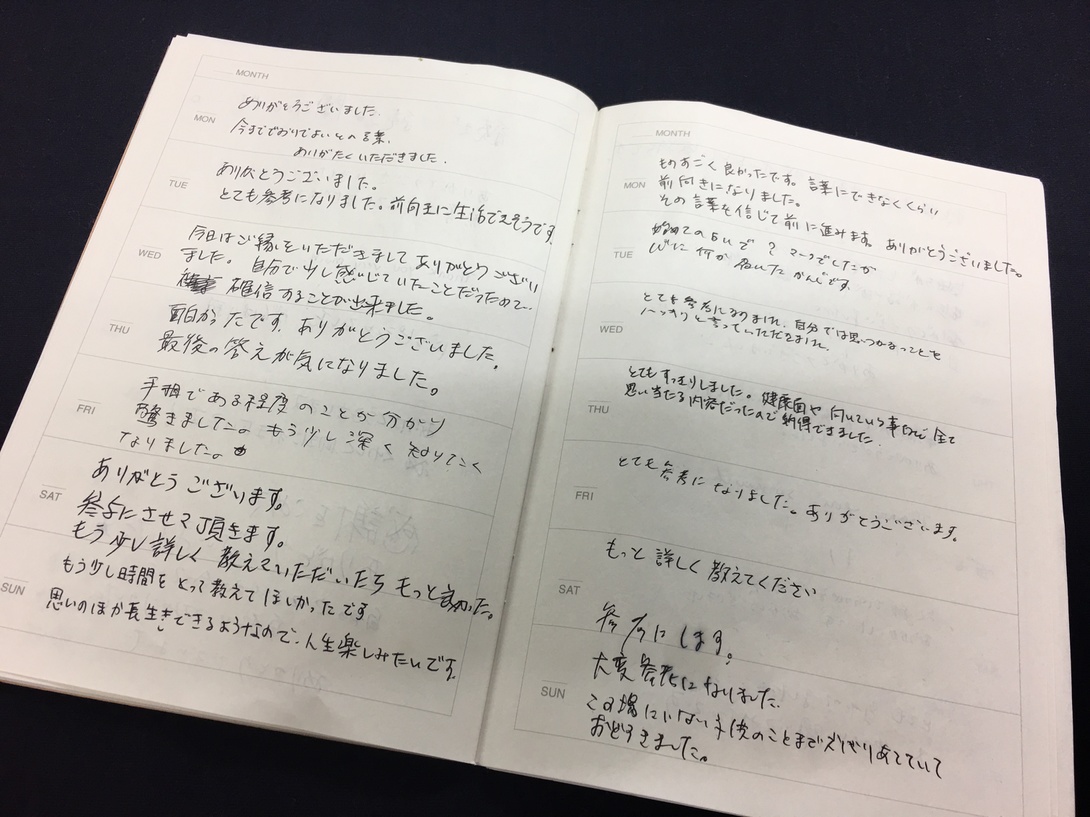 MONTH
MON
ありがとうございました。
今までどおりでよいとの言葉、
ありがたくいただきました。
TUE
ありがとうございました。
とても参考になりました。前向きに生活できそうです。
WED
今日はご縁をいただきまして ありがとうござい
ました。自分で少し感じていたことだったので、
確信することが出来ました。
THU
面白かったです。ありがとうございました。
最後の答えが気になりました。
FRI
手相である程度のことが分かり
驚きました。もう少し深く知りたく
なりました。
SAT
ありがとうございます。
参考にさせて頂きます。
もう少し詳しく教えていただいたら もっと良かった。
SUN
もう少し時間をとって教えてほしかったです
思いのほか長生きできるようなので、人生楽しみたいです。
MONTH
MON
ものすごく良かったです。言葉にできなくくらい
前向きになりました。
その言葉を信じて前に進みます。ありがとうございました。
TUE
始めての占いで ? マークでしたが
何か かんじです。
WED
とても参考になりました。自分では思いつかなことを
ハッキリと言っていただきました。
THU
とてもすっきりしました。健康面や 向いている事など 全て
思い当たる内容だったので納得できました。
FRI
とても参考になりました。ありがとうございます。
もっと詳しく教えてください
SAT
参考にします。
大変参考になりました。
SUN
この場にいない のことまで あてていて
おどろきました。